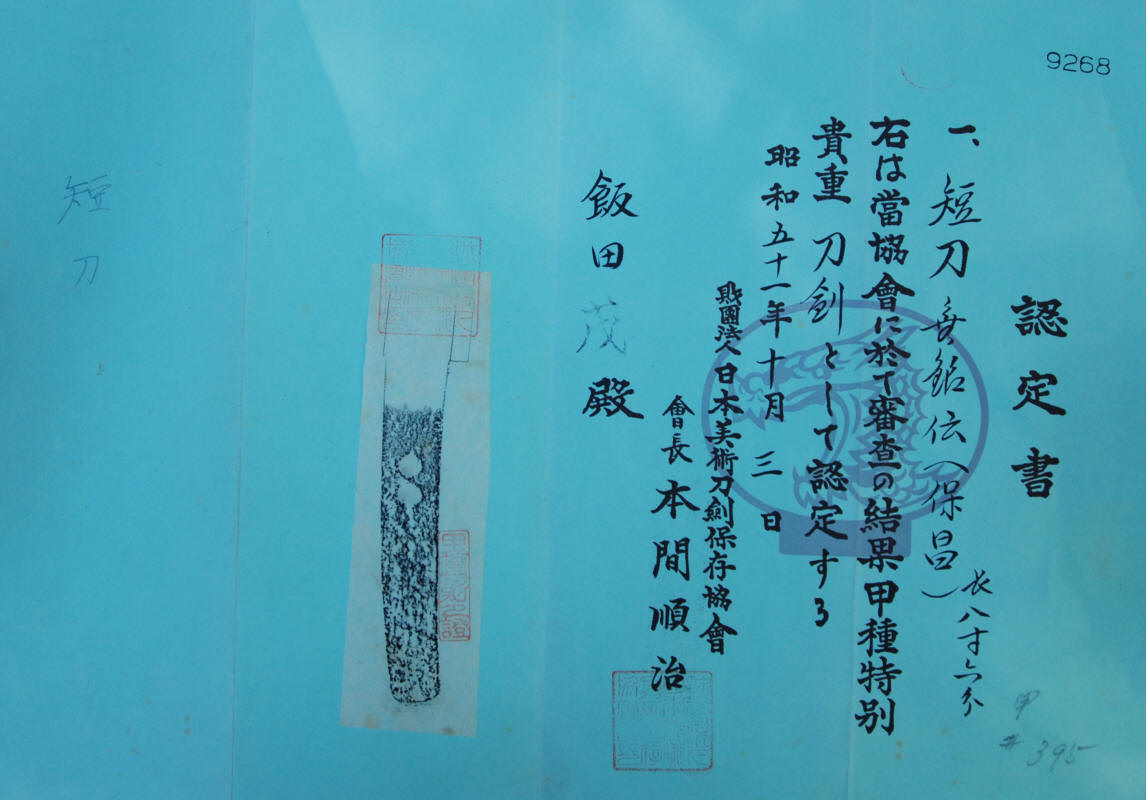 9268
認定書
一、短刀 無銘伝(保昌) 長八寸六分
右は當協會に於て審査の結果甲種特別
貴重刀剣として認定する
昭和五十一年十月三日
財團法人日本美術刀劍保存協會
會長 本間順治
飯田茂殿
短刀
甲
#395